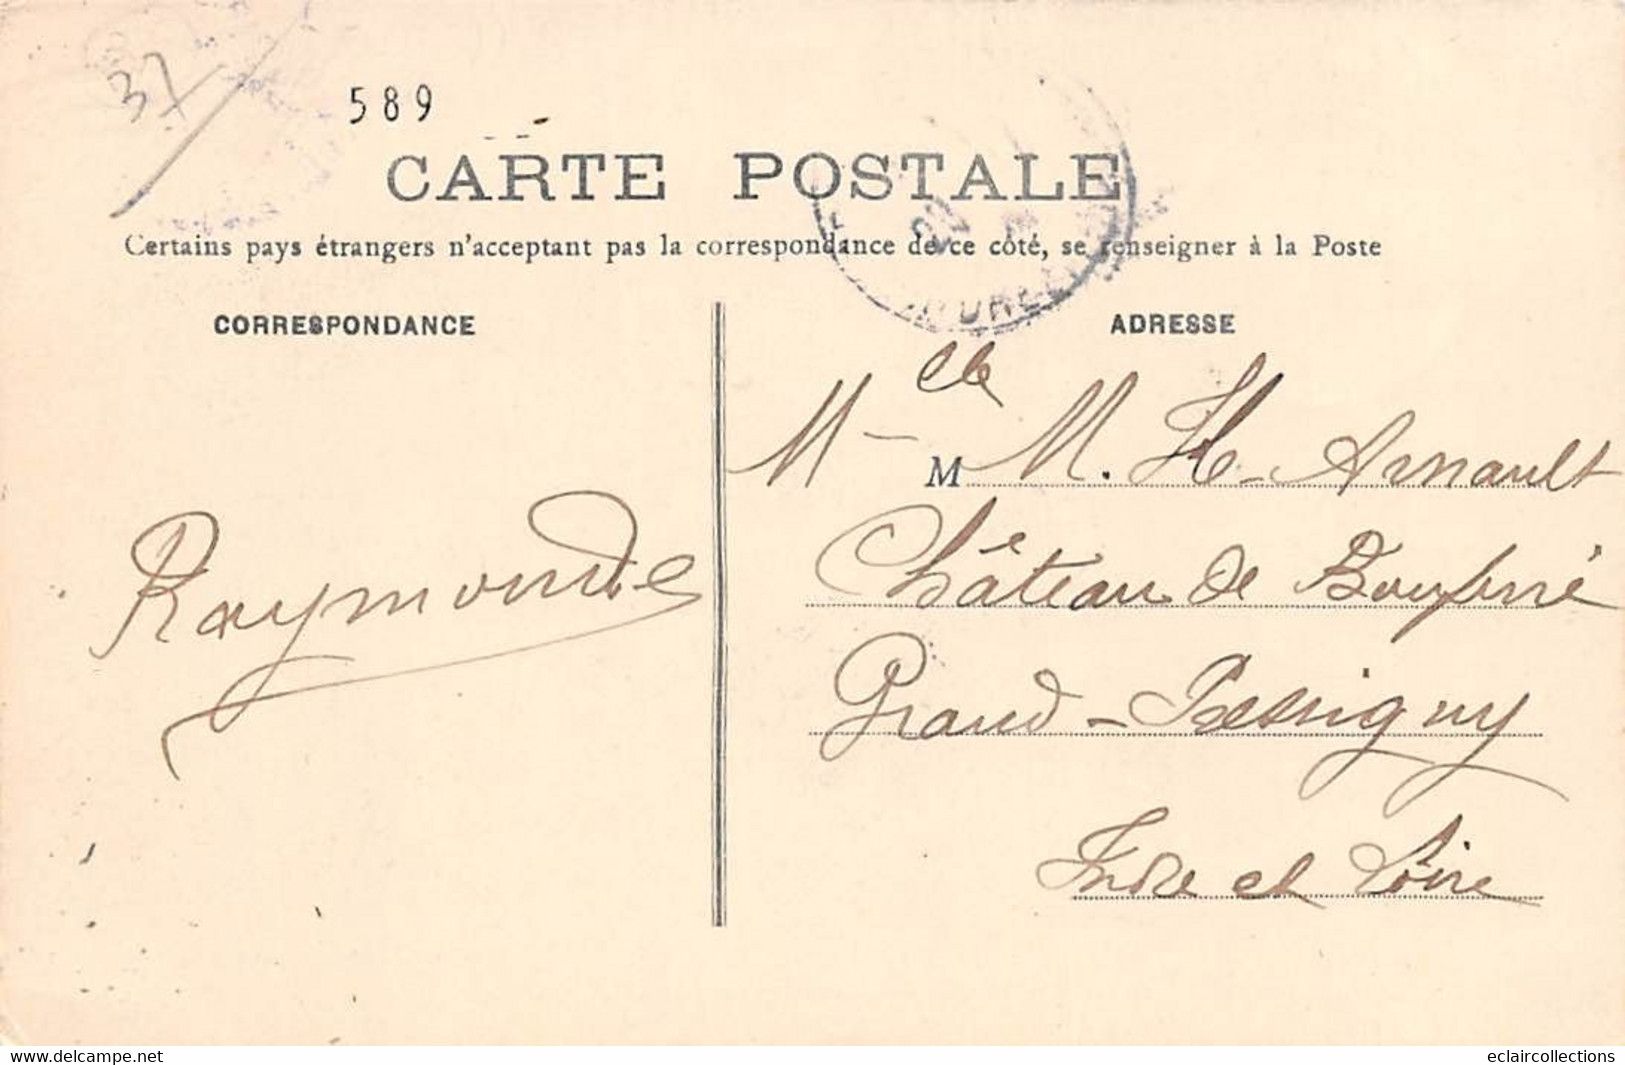 37
589
CARTE POSTALE
Certains pays étrangers n'acceptant pas la correspondance de ce côté, se renseigner à la Poste
CORRESPONDANCE
ADRESSE
Melle M M. H. Arnault
Château de
Raymonde
Grand-Pressigny
Indre et Loire
www.delcampe.net
eclaircollections